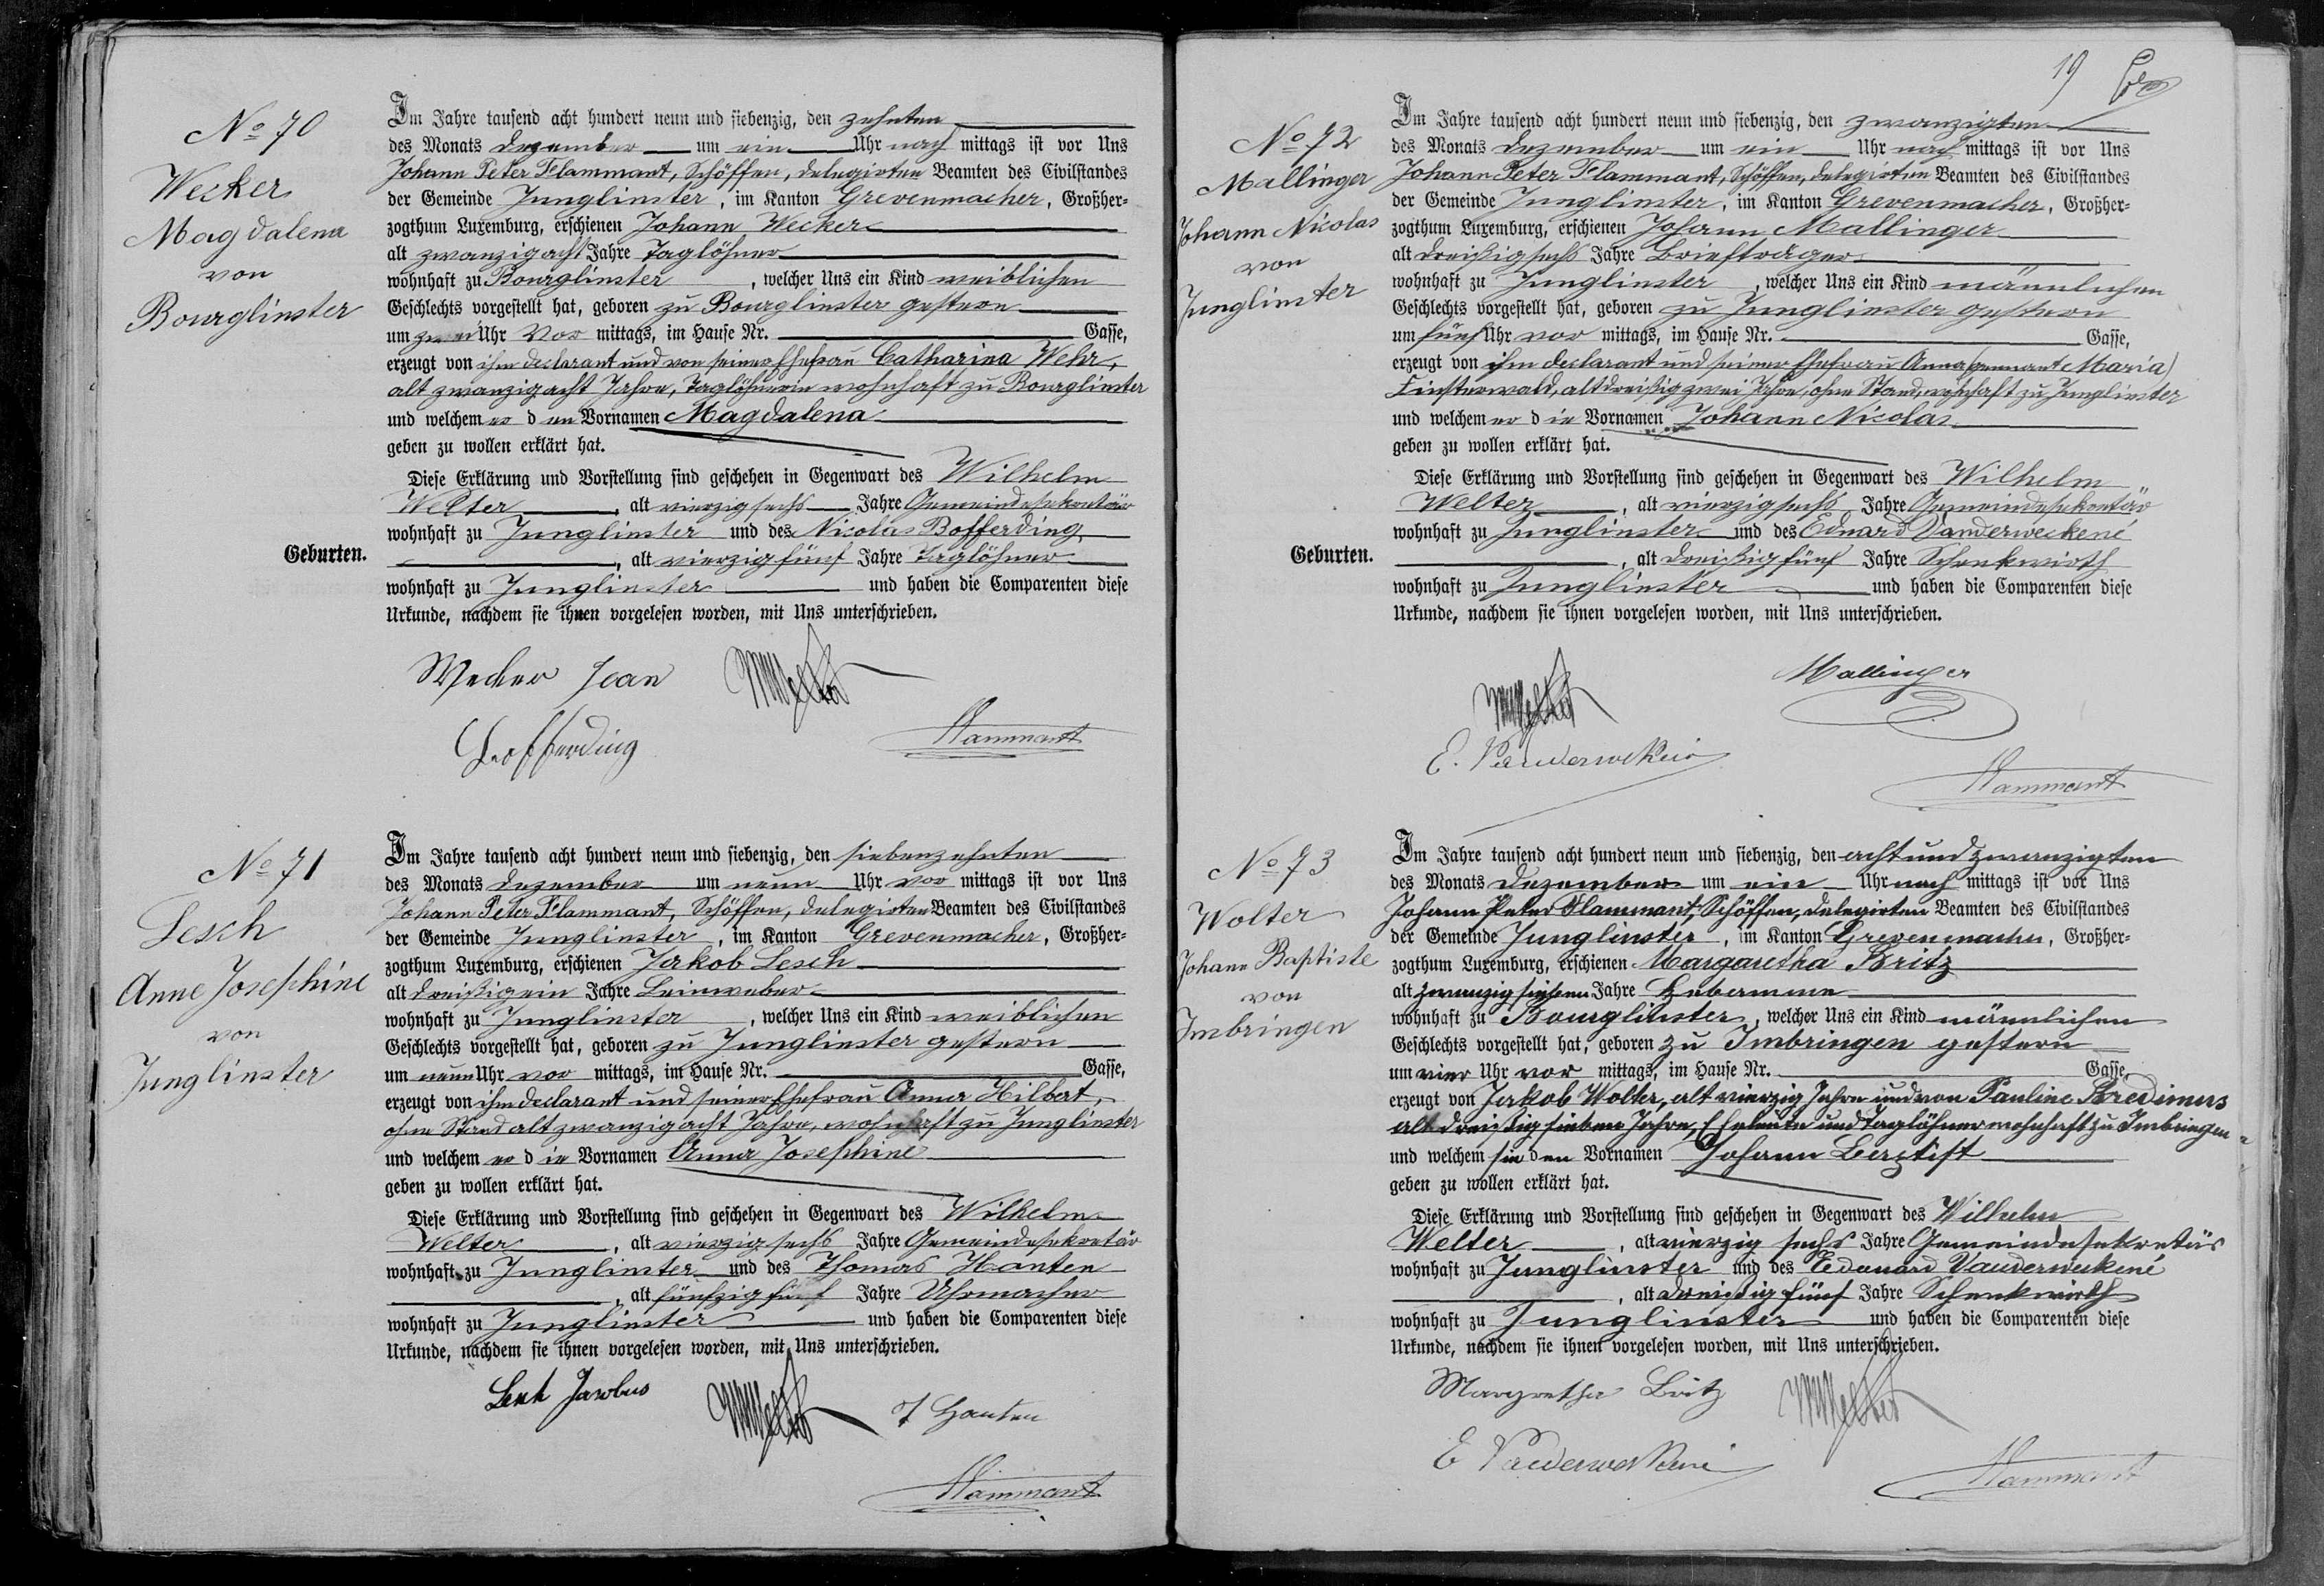 No 70
Wecker
Magdalena
von
Bourglinster
Im Jahre tausend acht hundert neun und siebenzig, den zehnten
des Monats Dezember um ein Uhr nach mittags ist vor Uns
Johann Peter Flammant, Schöffen, delegirten Beamten des Civilstandes
der Gemeinde Junglinster, im Kanton Grevenmacher, Großher-
zogthum Luxemburg, erschienen Johann Wecker
alt zwanzigacht Jahre Taglöhner
wohnhaft zu Bourglinster, welcher Uns ein Kind weiblichen
Geschlechts vorgestellt hat, geboren zu Bourglinster gestern
um zwei Uhr Vor mittags, im Hause Nr. Gasse,
erzeugt von ihm declarant und von seiner Ehefrau Catharina Wehr,
alt zwanzigacht Jahre, Taglöhnerin wohnhaft zu Bourglinster
und welchem er den Vornamen Magdalena
geben zu wollen erklärt hat.
Diese Erklärung und Vorstellung sind geschehen in Gegenwart des Wilhelm
Welter, alt vierzigsechs Jahre Gemeindesekretär
wohnhaft zu Junglinster und des Nicolas Bofferding
Geburten.
, alt vierzigfünf Jahre Taglöhner
wohnhaft zu Junglinster und haben die Comparenten diese
Urkunde, nachdem sie ihnen vorgelesen worden, mit Uns unterschrieben.
Wecker Jean
Bofferding
Flammant
No 71
Lesch
Anne Josephine
von
Junglinster
Im Jahre tausend acht hundert neun und siebenzig, den siebenzehnten
des Monats Dezember um neun Uhr vor mittags ist vor Uns
Johann Peter Flammant, Schöffen, delegirten Beamten des Civilstandes
der Gemeinde Junglinster, im Kanton Grevenmacher, Großher-
zogthum Luxemburg, erschienen Jakob Lesch
alt dreißigein Jahre Leinweber
wohnhaft zu Junglinster, welcher Uns ein Kind weiblichen
Geschlechts vorgestellt hat, geboren zu Junglinster gestern
um neun Uhr vor mittags, im Hause Nr. Gasse,
erzeugt von ihm declarant und seiner Ehefrau Anna Hilbert,
ohne Stand alt zwanzigacht Jahre, wohnhaft zu Junglinster
und welchem er die Vornamen Anna Josephine
geben zu wollen erklärt hat.
Diese Erklärung und Vorstellung sind geschehen in Gegenwart des Wilhelm
Welter, alt vierzigsechs Jahre Gemeindesekretär
wohnhaft zu Junglinster und des Thomas Hanten
, alt fünfzigfünf Jahre Uhrmacher
wohnhaft zu Junglinster und haben die Comparenten diese
Urkunde, nachdem sie ihnen vorgelesen worden, mit Uns unterschrieben.
Hanten
Flammant
19
No 72
Mallinger
Johann Nicolas
von
Junglinster
Im Jahre tausend acht hundert neun und siebenzig, den zwanzigten
des Monats Dezember um ein Uhr nach mittags ist vor Uns
Johann Peter Flammant, Schöffen, delegirten Beamten des Civilstandes
der Gemeinde Junglinster, im Kanton Grevenmacher, Großher-
zogthum Luxemburg, erschienen Johann Mallinger
alt dreißigsechs Jahre Briefträger
wohnhaft zu Junglinster, welcher Uns ein Kind männlichen
Geschlechts vorgestellt hat, geboren zu Junglinster gestern
um fünf Uhr vor mittags, im Hause Nr. Gasse,
erzeugt von ihm declarant und seiner Ehefrau Anna (genannt Maria)
Finsterwald, alt dreißigzwei Jahre, ohne Stand, wohnhaft zu Junglinster
und welchem er die Vornamen Johann Nicolas
geben zu wollen erklärt hat.
Diese Erklärung und Vorstellung sind geschehen in Gegenwart des Wilhelm
Welter, alt vierzigsechs Jahre Gemeindesekretär
wohnhaft zu Junglinster und des Eduard Vanderweckené
Geburten.
, alt dreißigfünf Jahre Schenkwirth
wohnhaft zu Junglinster und haben die Comparenten diese
Urkunde, nachdem sie ihnen vorgelesen worden, mit Uns unterschrieben.
Mallinger
Flammant
No 73
Wolter
Johann Baptiste
von
Imbringen
Im Jahre tausend acht hundert neun und siebenzig, den achtundzwanzigten
des Monats Dezember um ein Uhr nach mittags ist vor Uns
Johann Peter Flammant, Schöffen, delegirten Beamten des Civilstandes
der Gemeinde Junglinster, im Kanton Grevenmacher, Großher-
zogthum Luxemburg, erschienen Margaretha Britz
alt zwanzigsieben Jahre Hebamme
wohnhaft zu Bourglinster, welcher Uns ein Kind männlichen
Geschlechts vorgestellt hat, geboren zu Imbringen gestern
um vier Uhr vor mittags, im Hause Nr. Gasse,
erzeugt von Jakob Wolter, alt vierzig Jahre und von Pauline Bredimus
alt dreißigsieben Jahre, Eheleute und Taglöhner wohnhaft zu Imbringen
und welchem sie den Vornamen Johann Baptist
geben zu wollen erklärt hat.
Diese Erklärung und Vorstellung sind geschehen in Gegenwart des Wilhelm
Welter, alt vierzig sechs Jahre Gemeindesekretär
wohnhaft zu Junglinster und des Edouard Vanderweckené
, alt dreißigfünf Jahre Schenkwirth
wohnhaft zu Junglinster und haben die Comparenten diese
Urkunde, nachdem sie ihnen vorgelesen worden, mit Uns unterschrieben.
Margretha Britz
Flammant